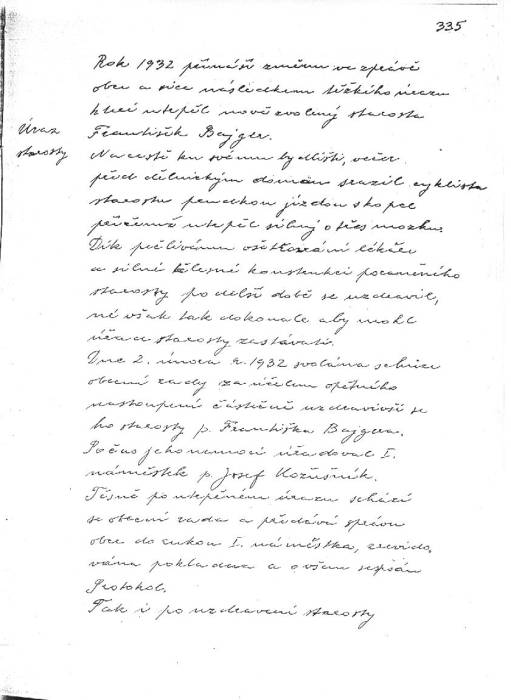 335
Rok 1932 přináší změnu ve zprávě
obce a sice následkem těžkého úrazu
který utrpěl nově zvolený starosta
Úraz
starosty
František Bajger.
Na cestě ku svému bydlišti, večer
před dělnickým domem srazil cyklista
starostu prudkou jízdou s kopce
přičemž utrpěl silný otřes mozku.
Dík pečlivému ošetřování lékaře
a silné tělesné konstrukci poraněného
starosty po delší době se uzdravil,
ne však tak dokonale aby mohl
úřad starosty zastávati.
Dne 2. února r. 1932 svolána schůze
obecní rady za účelem opětného
nastoupení částečně uzdravivší se
ho starosty p. Františka Bajgera.
Po čas jeho nemoci úřadoval I.
náměstek p. Josef Kožušník.
Těsně po utrpěném úrazu schází
se obecní rada a předává správu
obce do rukou I. náměstka, zrevido,
vána pokladna a o všem sepsán
Protokol.
Tak i po uzdravení starosty